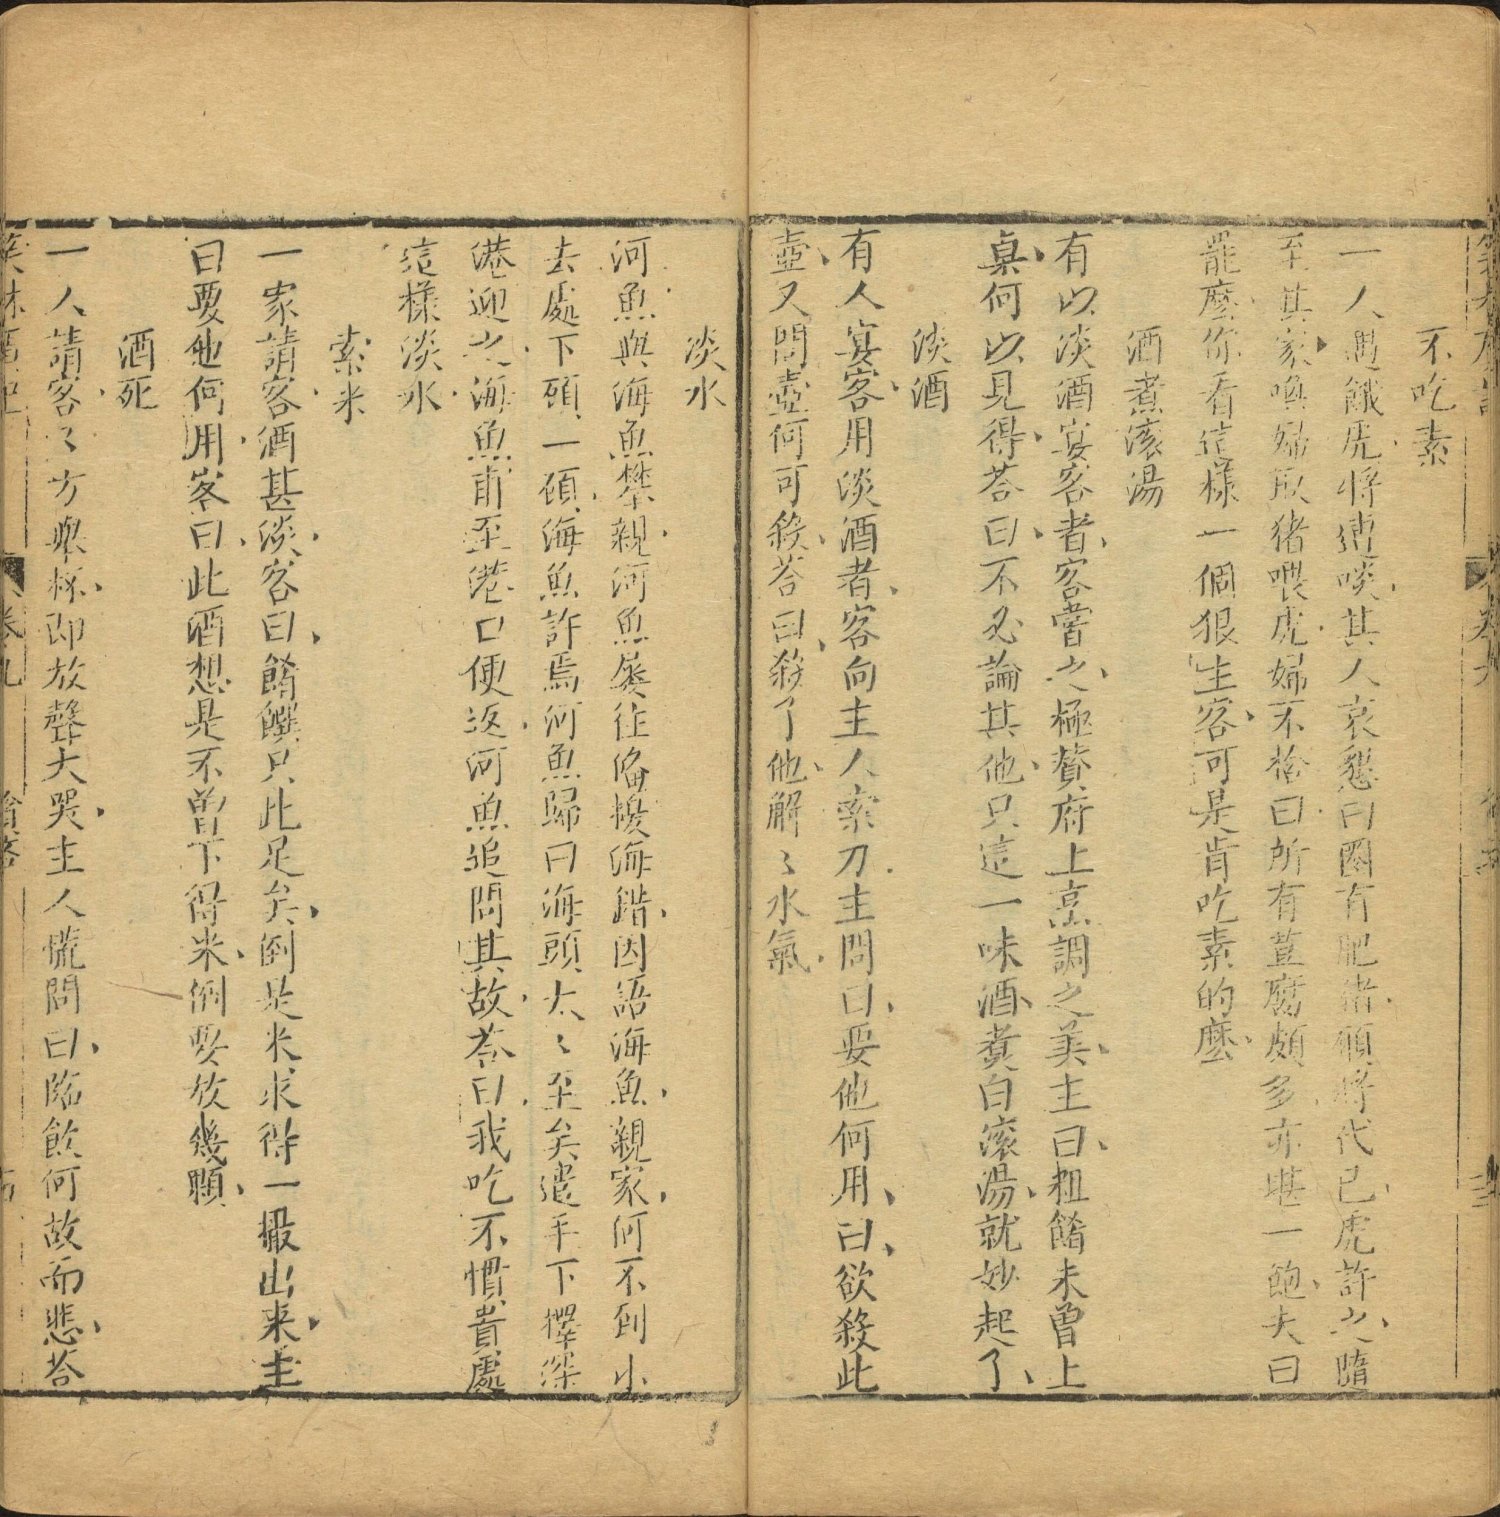 不吃素
一人遇餓虎將遭啖其人哀懇曰圈有肥猪願將代己虎許之隨
至其家喚婦取猪喂虎婦不捨曰所有荳腐頗多亦堪一飽夫曰
罷麼你看這樣一個狠生客可是肯吃素的麼
酒煮滚湯
有以淡酒宴客者客嘗之極賛府上烹調之美主曰粗餚未曾上
桌何以見得荅曰不必論其他只這一味酒煑白滚湯就妙起了
淡酒
有人宴客用淡酒者客向主人索刀主問曰要他何用曰欲殺此
壺又問壺何可殺荅曰殺了他解〻水氣
淡水
河魚與海魚攀親河魚屡往偹擾海錯因語海魚親家何不到小
去處下頭一頎海魚許焉河魚歸曰海頭大〻至矣遣手下擇深
港迎之海魚甫至港口便返河魚追問其故荅曰我吃不慣貴處
這樣淡水
索米
一家請客酒甚淡客曰餚饌只此足矣倒是米求得一撮出来主
曰要他何用客曰此酒想是不曽下得米倒要放幾顆
酒死
一人請客〻方舉杯即放聲大哭主人慌問曰臨飲何故而悲荅
卷九